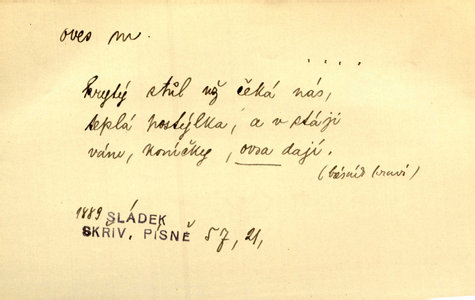 oves m.
. . . .
krytý stůl už čeká nás,
teplá postýlka, a v stáji
vám, koníčky, ovsa dají.
(básník praví)
1889 SLÁDEK
SKŘIV. PÍSNĚ 57, 21,